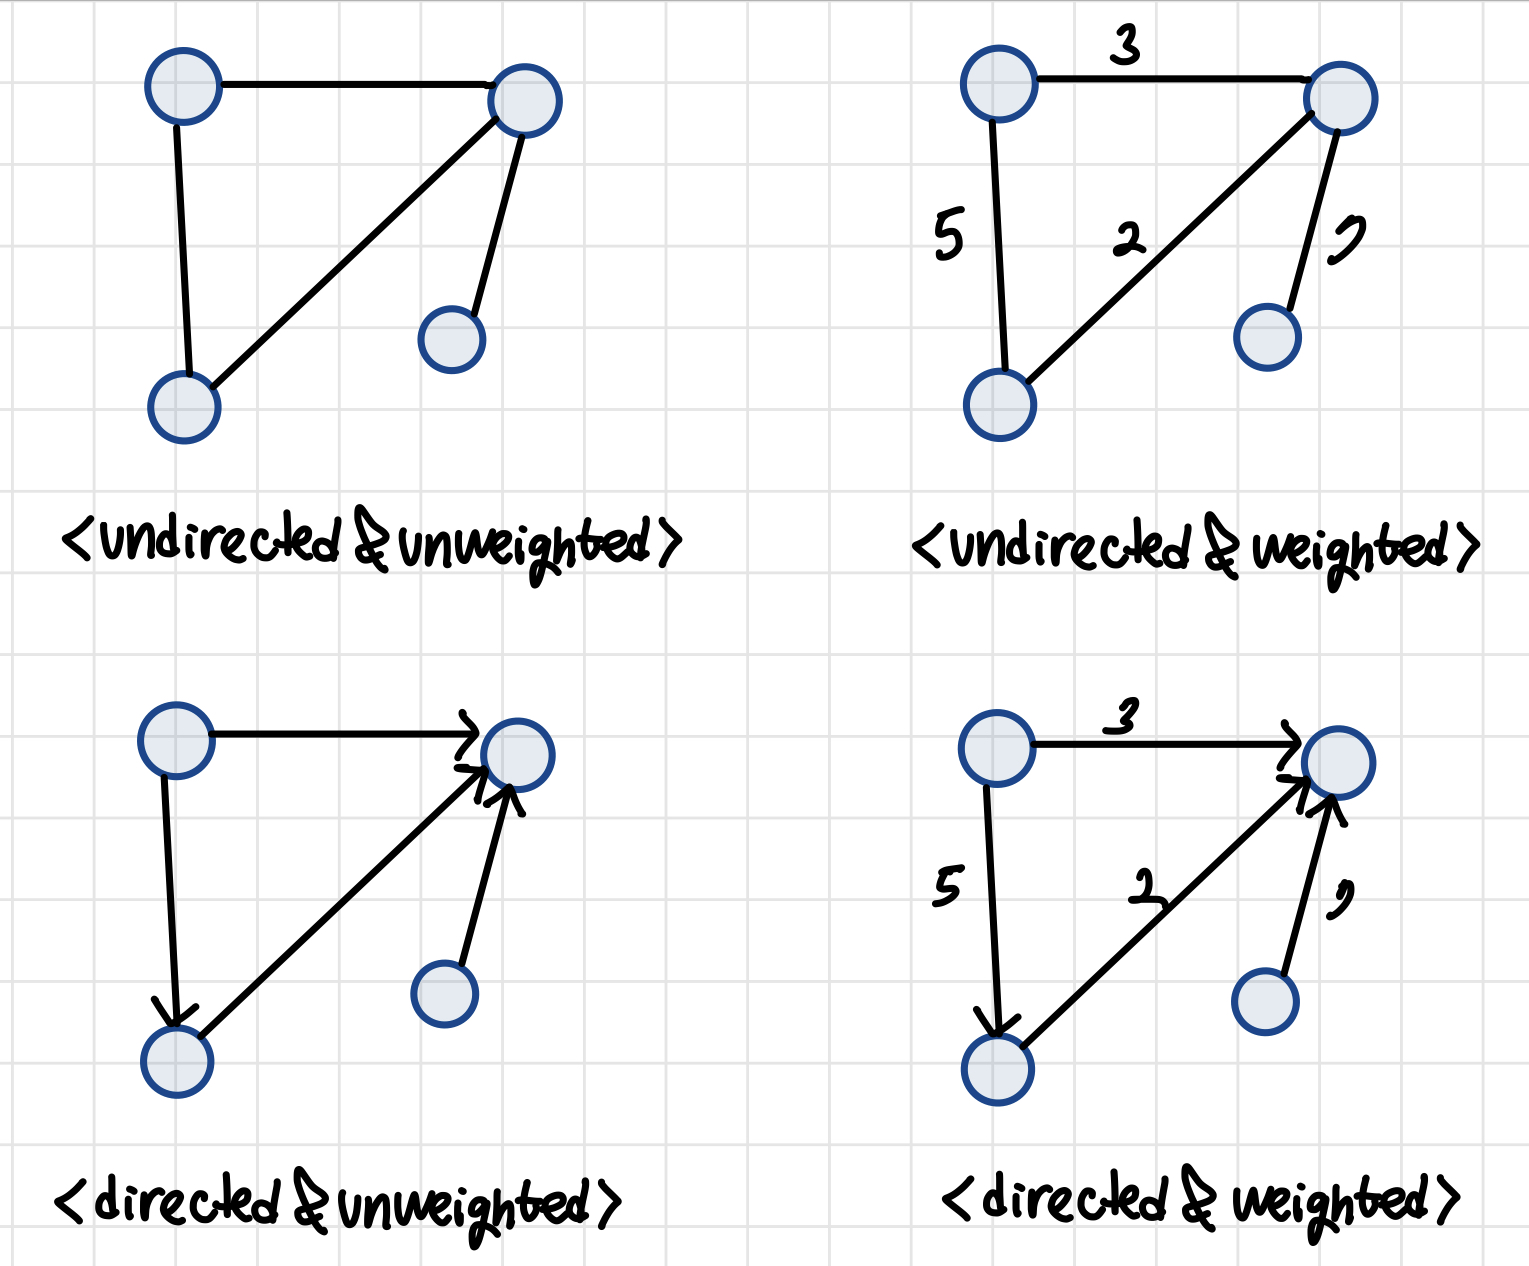 3
5
2
<undirected & unweighted>
<undirected & weighted>
3
5
2
<directed & unweighted>
<directed & weighted>